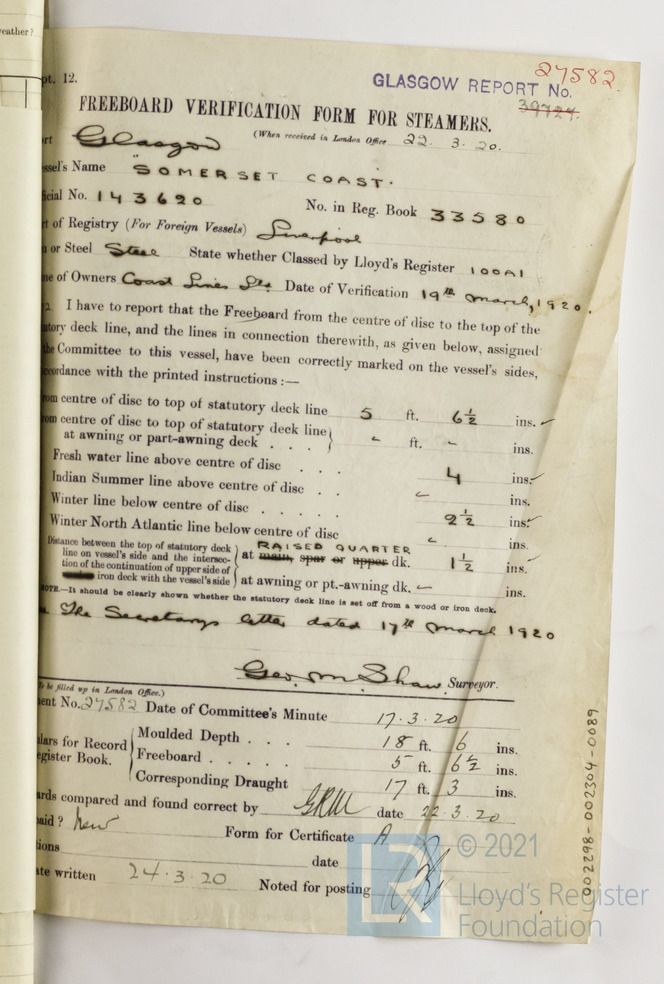 eather?
pt. 12.
GLASGOW REPORT No. 27582.
39724
FREEBOARD VERIFICATION FORM FOR STEAMERS.
(When received in London Office 22. 3. 20.
rt Glasgow
ssel's Name "SOMERSET COAST.
icial No. 143620
No. in Reg. Book 33580
t of Registry (For Foreign Vessels) Liverpool
or Steel Steel State whether Classed by Lloyd's Register 100A1
me of Owners Coast Lines Ld. Date of Verification 19th March, 1920.
I have to report that the Freeboard from the centre of disc to the top of the
utory deck line, and the lines in connection therewith, as given below, assigned
the Committee to this vessel, have been correctly marked on the vessel's sides,
ccordance with the printed instructions :—
om centre of disc to top of statutory deck line 5 ft. 6½ ins.
om centre of disc to top of statutory deck line
at awning or part-awning deck . . . - ft. - ins.
Fresh water line above centre of disc . . . 4 ins.
Indian Summer line above centre of disc . . - ins.
Winter line below centre of disc . . . . . 2½ ins.
Winter North Atlantic line below centre of disc - ins.
Distance between the top of statutory deck
line on vessel's side and the intersec-
tion of the continuation of upper side of
iron deck with the vessel's side
RAISED QUARTER
at main, spar or upper dk. 1½ ins.
at awning or pt.-awning dk. - ins.
NOTE.—It should be clearly shown whether the statutory deck line is set off from a wood or iron deck.
The Secretarys letter dated 17th March 1920
Geo. M. Shaw Surveyor.
To be filled up in London Office.)
ent No. 27582 Date of Committee's Minute 17.3.20
lars for Record
egister Book.
Moulded Depth . . . 18 ft. 6 ins.
Freeboard . . . . . 5 ft. 6½ ins.
Corresponding Draught 17 ft. 3 ins.
ards compared and found correct by GRM date 22.3.20
aid ? New
Form for Certificate A
ions
date
ate written 24.3.20 Noted for posting
002298-002304-0089
© 2021
LR
Lloyd's Register
Foundation